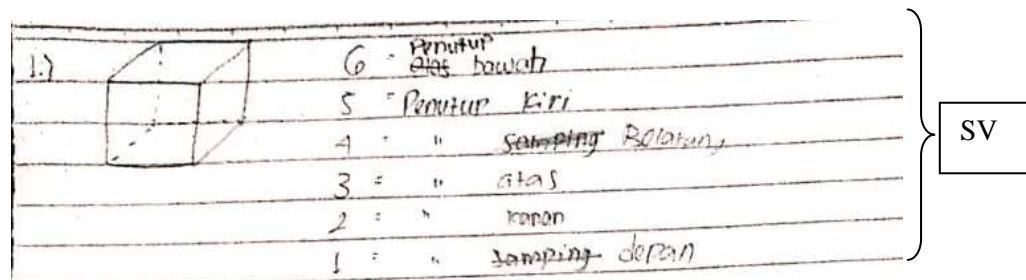 1.) 6 = Penutup atas bawah
5 = Penutup kiri
4 = " samping Belakang
3 = " atas
2 = " kanan
1 = " samping depan
SV